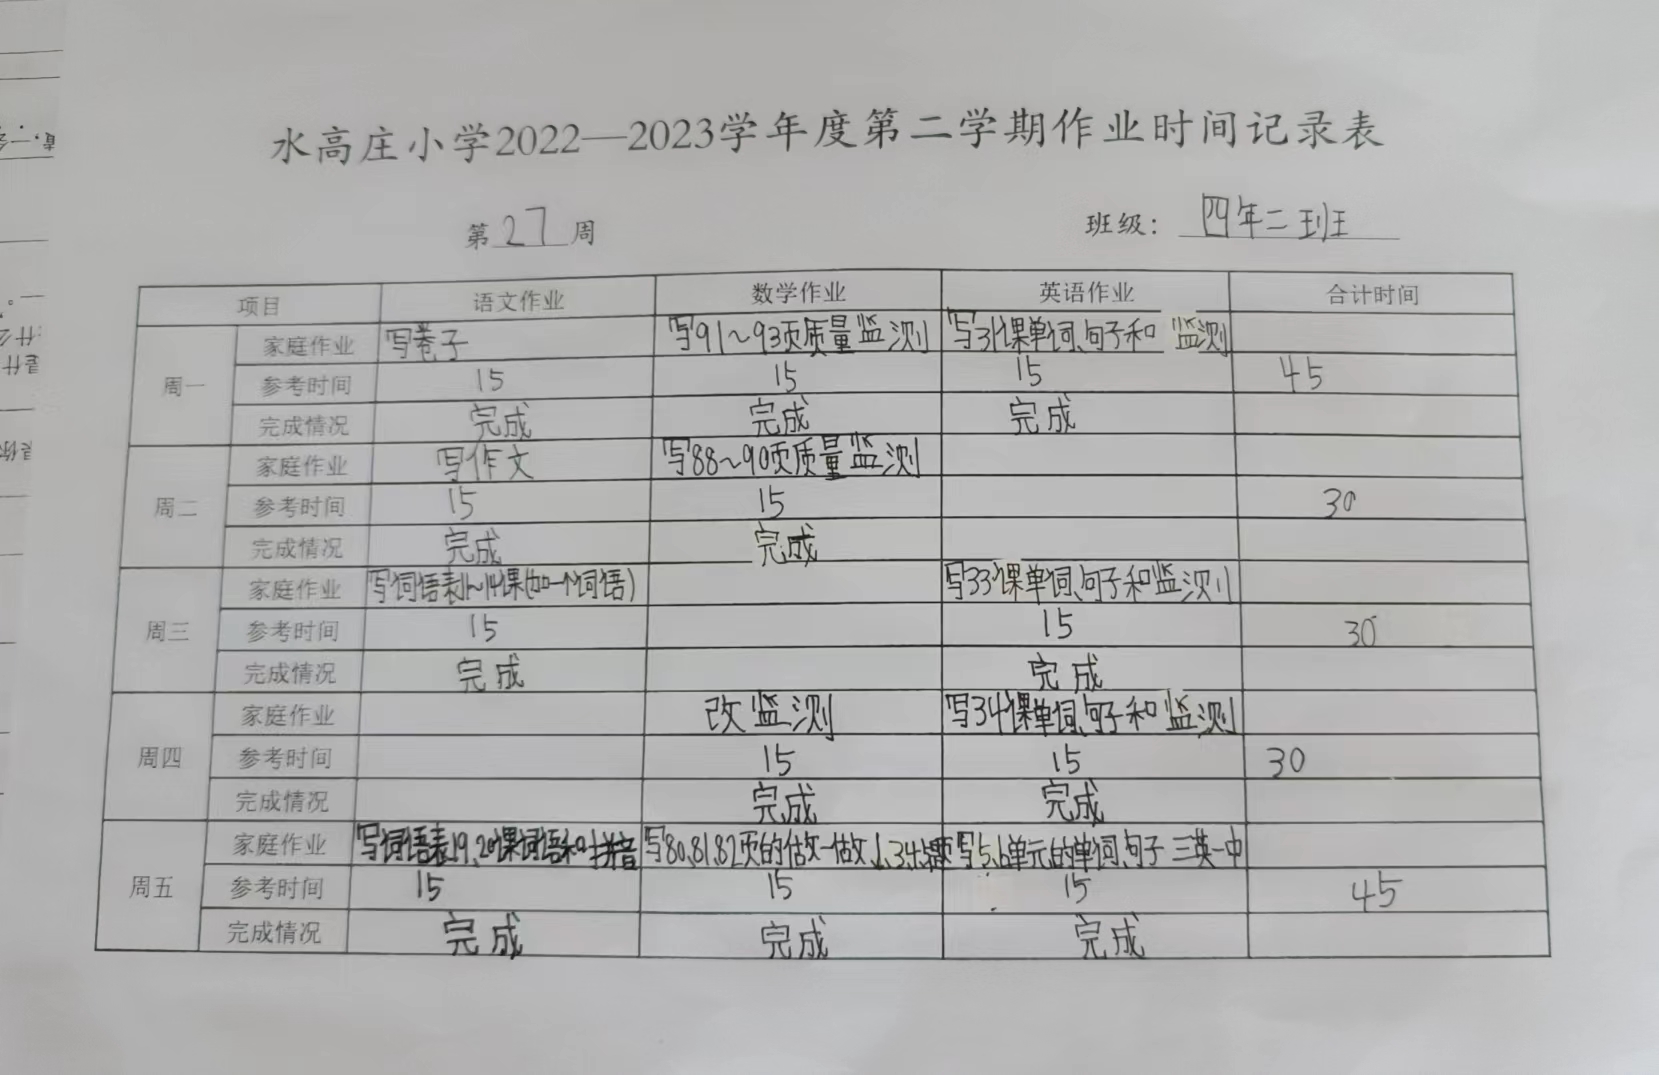 水高庄小学2022—2023学年度第二学期作业时间记录表
第27周 班级：四年二班
项目 语文作业 数学作业 英语作业 合计时间
周一 家庭作业 写卷子 写91～93页质量监测 写31课单词、句子和 监测
参考时间 15 15 15 45
完成情况 完成 完成 完成
周二 家庭作业 写作文 写88～90页质量监测
参考时间 15 15 30
完成情况 完成 完成
周三 家庭作业 写词语表1～14课(加一个词语) 写33课单词、句子和监测
参考时间 15 15 30
完成情况 完成 完成
周四 家庭作业 改监测 写34课单词、句子和监测
参考时间 15 15 30
完成情况 完成 完成
周五 家庭作业 写词语表19、20课词语和拼音 写80、81、82页的做一做 写5、6单元的单词、句子 三英一中
参考时间 15 15 15 45
完成情况 完成 完成 完成